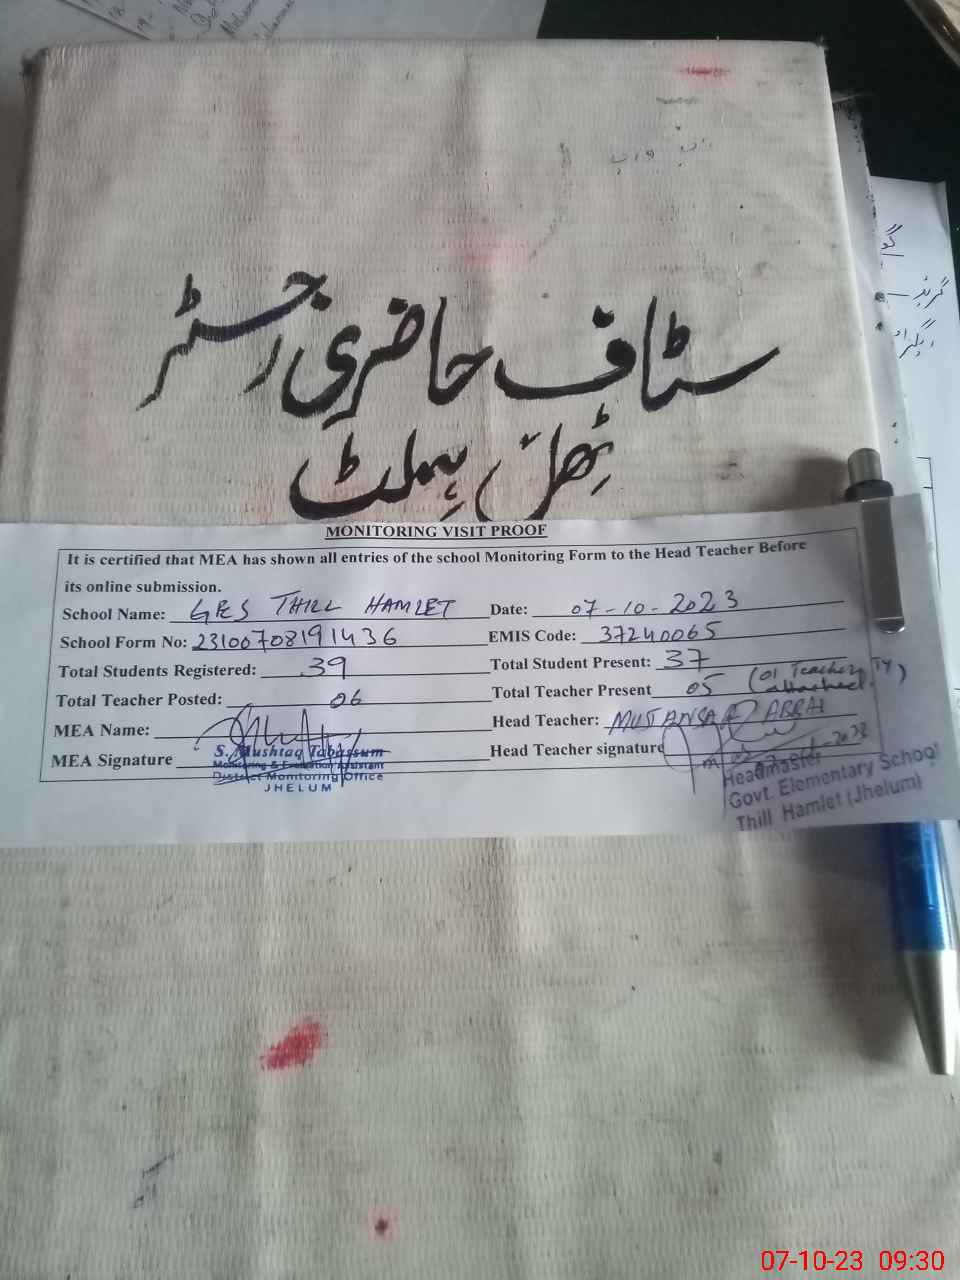 سٹاف حاضری رجسٹر
ٹھل ہملٹ
MONITORING VISIT PROOF
It is certified that MEA has shown all entries of the school Monitoring Form to the Head Teacher Before
its online submission.
School Name: GES THILL HAMLET Date: 07-10-2023
School Form No: 23100708191436 EMIS Code: 37240065
Total Students Registered: 39 Total Student Present: 37
Total Teacher Posted: 06 Total Teacher Present 05 (01 Teacher Ty attached)
MEA Name: Head Teacher: MUSTANSAR ABBAS
MEA Signature Head Teacher signature
S. Mushtaq Tabassum
Monitoring & Evaluation Assistant
District Monitoring Office
JHELUM
Headmaster
Govt. Elementary School
Thill Hamlet (Jhelum)
07-10-23 09:30